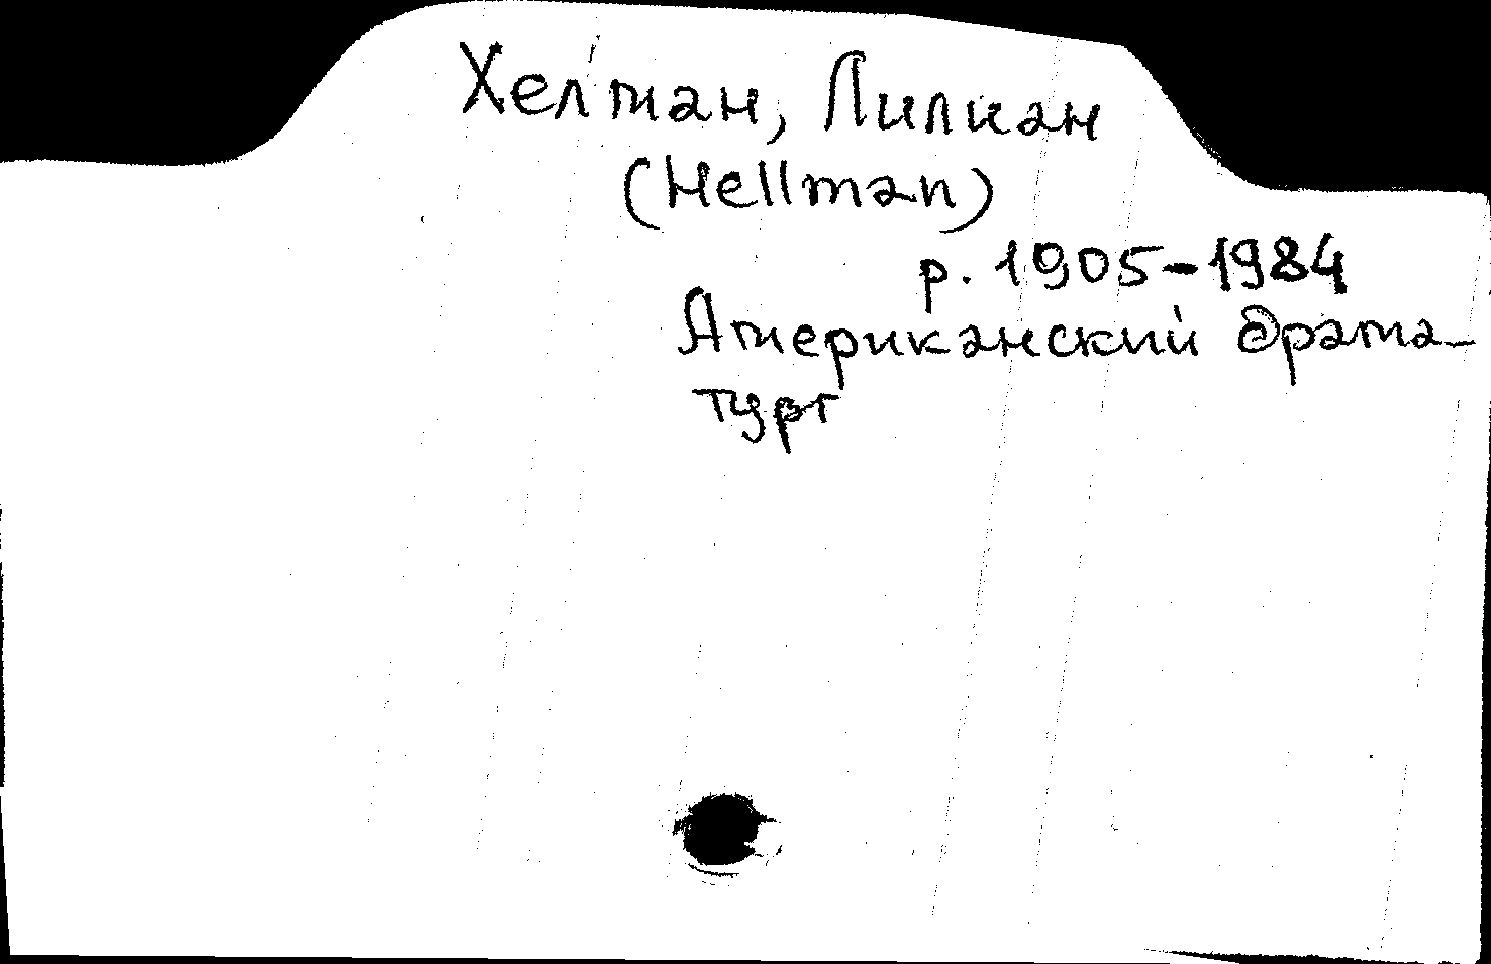 Хелман, Лилиан
(Hellman)
р. 1905-1984
Американский драма-
тург